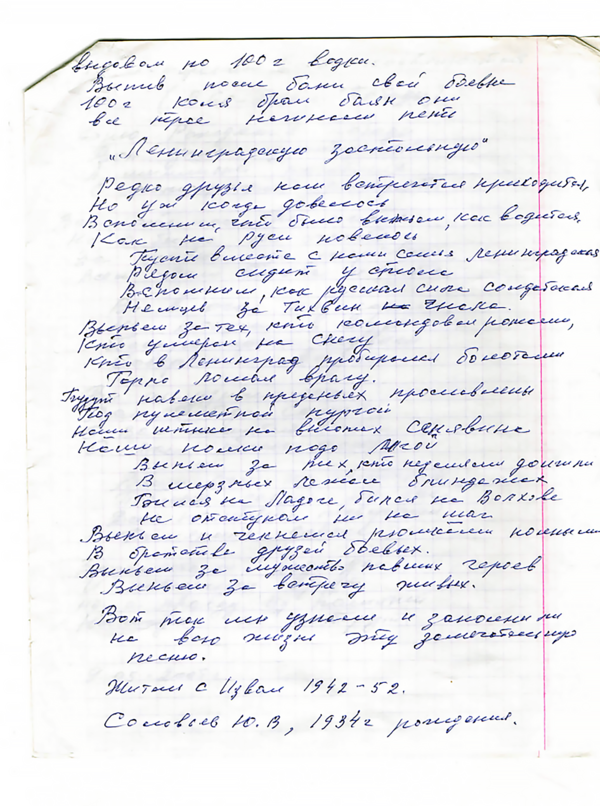 выдавали по 100 г водки.
Выпив после бани свои боевые
100 г Коля брал баян они
все трое начинали петь
„Ленинградскую застольную"
Редко друзья нам встречатся приходится,
Но уж когда довелось
Вспомним, что было выпьем, как водится,
Как на Руси повелось
Пусть вместе с нами семья Ленинградская
Рядом сидит у стола
Вспомним, как русская сила солдатская
Немцев за Тихвин гнала.
Выпьем за тех, кто командовал ротами,
Кто умирал на снегу
Кто в Ленинград пробирался болотами
Горло ломая врагу.
Будут навеки в преданьях прославлены
Под пулеметной пургой
Наши штыки на высотах Синявина
Наши полки подо Мгой
Выпьем за тех, кто неделями долгими
В мерзлых лежал блиндажах
Бился на Ладоге, бился на Волхове
Не отступал ни на шаг
Выпьем и чекнемся рюмками полными
В братстве друзей боевых.
Выпьем за мужество павших героев
Выпьем за встречу живых.
Вот так мы узнали и запомнили
на всю жизнь эту замечательную
песню.
Житель с Извал 1942-52.
Соловьев Ю.В, 1934г рождения.